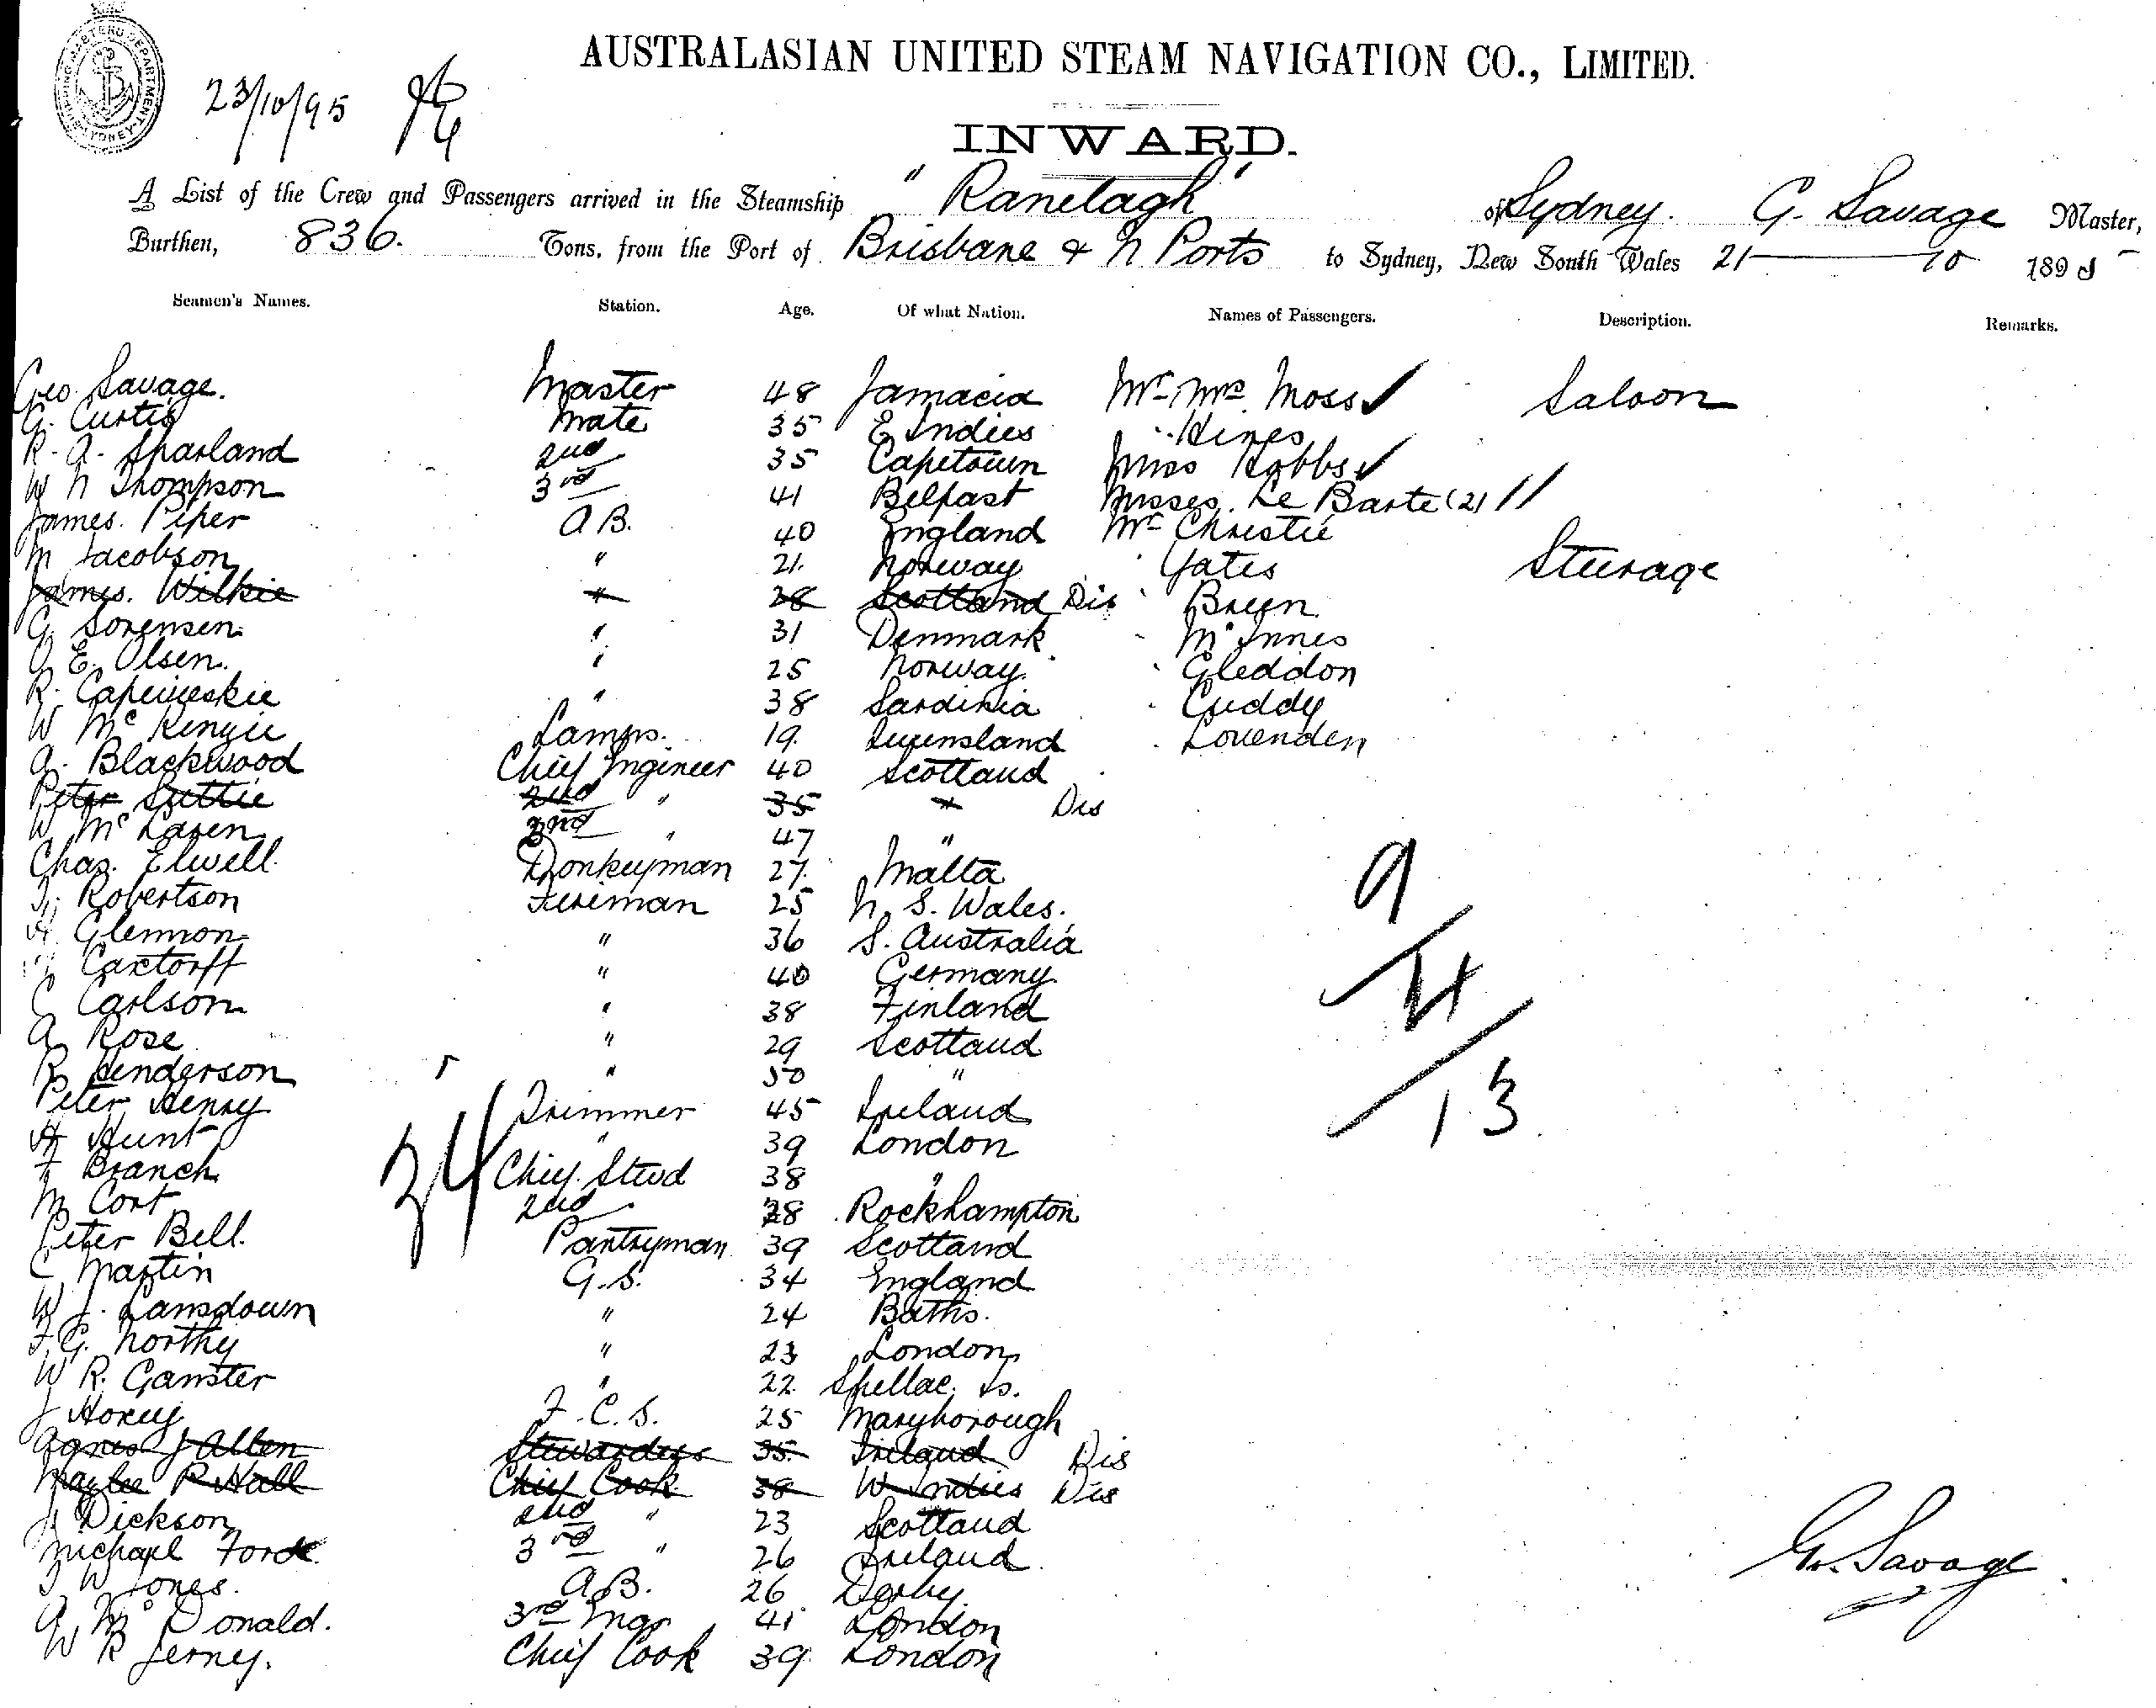 SHIPPING MASTERS DEPARTMENT SYDNEY
23/10/95
AUSTRALASIAN UNITED STEAM NAVIGATION CO., LIMITED.
INWARD.
A List of the Crew and Passengers arrived in the Steamship "Ranelagh" of Sydney. G. Savage Master,
Burthen, 836. Tons, from the Port of Brisbane & N Ports to Sydney, New South Wales 21 — 10 1895
Seamen's Names. Station. Age. Of what Nation. Names of Passengers. Description. Remarks.
Geo. Savage. Master 48 Jamacia Mr Mrs Moss Saloon
G. Curtis Mate 35 E Indies " Hines
R. A. Sparland 2nd 35 Capetown Miss Hobbs
W N Thompson 3rd 41 Belfast Misses Le Barte (2) //
James. Piper A B. 40 England Mr Christie
M Jacobson " 21. Norway Yates Steerage
James. Wilkie " 28 Scotland Dis Breen
G. Sorensen " 31 Denmark McInnes
O E. Olsen. " 25 Norway. Gleddon
R. " 38 Sardinia Cuddy
W McKenzie Lamps. 19. Queensland Lovenden
A. Blackwood Chief Engineer 40 Scotland
Peter Suttie 2nd " 35 " Dis
W McLaren 2nd " 47 "
Chas. Elwell. Donkeyman 27. Malta
Robertson Fireman 25 N. S. Wales.
Glennon " 36 S. Australia
Cartorff " 40 Germany
C Carlson " 38 Finland
A Rose " 29 Scotland
R Henderson " 50 "
Peter Henry Trimmer 45 Ireland
H Hunt " 39 London
F Branch Chief Stwd 38 "
M Cort 2nd 28 Rockhampton
Peter Bell. Pantryman 39 Scotland
C Martin G.S. 34 England
W J. Lansdown " 24 Baths.
F.G. Northy " 23 London
W R. Ganster " 22. Is.
J Hoxey F.C.S. 25 Maryborough
Agnes J Allen Stewardess 35. Ireland Dis
R Hall Chief Cook 38 W Indies Dis
J Dickson 2nd " 23 Scotland
Michael Forde 3rd " 26 Ireland
W Jones. A.B. 26 Derby
A McDonald. 3rd Engr 41 London
W R Jerney. Chief Cook 39 London
34
9/4/13
G. Savage